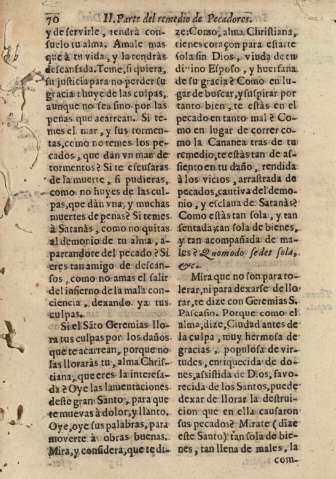 70 II. Parte del remedio de Pecadores.
y de servirle, tendrà con-
suelo tu alma. Amale mas
que à tu vida, y la tendràs
descansada. Teme, si quiera,
su justicia para no perder su
gracia: huye de las culpas,
aunque no sea sino por las
penas que acarrean. Si te-
mes el mar, y sus tormen-
tas, como no temes los pe-
cados, que dàn vn mar de
tormentos? Si te escusaras
de la muerte, si pudieras,
como no huyes de las cul-
pas, que dàn vna, y muchas
muertes de penas? Si temes
à Satanàs, como no quitas
al demonio de tu alma, a-
partandote del pecado? Si
eres tan amigo de descan-
sos, como no amas el salir
del infierno de la mala con-
ciencia, dexando ya tus
culpas.
Si el Sāto Geremias llo-
ra tus culpas por los daños
que te acarrean, porque no
las lloraràs tu, alma Chris-
tiana, que eres la interesa-
da? Oye las lamentaciones
deste gran Santo, para que
te muevas à dolor, y llanto.
Oye, oye sus palabras, para
moverte à obras buenas.
Mira, y considera, que te di-
ze: Como, alma Christiana,
tienes coraçon para estarte
sola sin Dios, viuda de tu
divino Esposo, y huerfana
de su gracia? Como en lu-
gar de buscar, y suspirar por
tanto bien, te estàs en el
pecado en tanto mal? Co-
mo en lugar de correr co-
mo la Cananea tras de tu
remedio, te estàs tan de as-
siento en tu daño, rendida
à los vicios, arrastrada de
pecados, cautiva del demo-
nio, y esclava de Satanàs?
Como estàs tan sola, y tan
sentada; tan sola de bienes,
y tan acompañada de ma-
les? Quomodo sedes sola,
&c.
Mira que no son para to-
lerar, ni para dexarse de llo-
rar, te dize con Geremias S.
Pascasio. Porque como el
alma, dize, Ciudad antes de
la culpa, muy hermosa de
gracias, populosa de vir-
tudes, enriquecida de do-
nes, assistida de Dios, favo-
recida de los Santos, puede
dexar de llorar la destrui-
cion que en ella causaron
sus pecados? Mirate (dize
este Santo) tan sola de bie-
nes, tan llena de males, la
com-